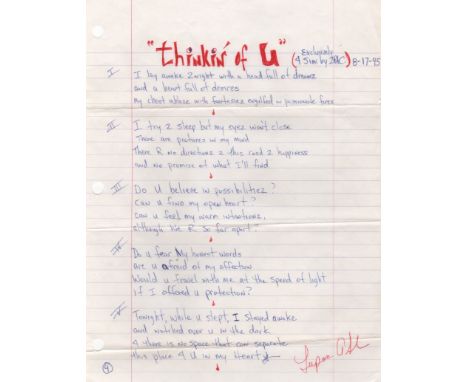 "thinkin' of U"
(Exclusively
4 Simi by 2PAC) 8-17-95
I.
I lay awake 2night with a head full of dreams
and a heart full of desires
my chest ablaze with fantasies engulfed in passionate fires
II
I try 2 sleep but my eyez won't close
There are pictures in my mind
There R no directions 2 this road 2 happiness
and no promise of what I'll find
III
Do U believe in possibilities?
Can u my open heart?
Can u feel my warm intentions,
although We R So far apart?
IV
Do u fear My honest words
are u afraid of my affection
Would u travel with me at the speed of light
if I offered u protection?
V
Tonight, while u slept, I stayed awake
and watched over u in the dark
4 there is no space that can separate
this place 4 U in my Heart